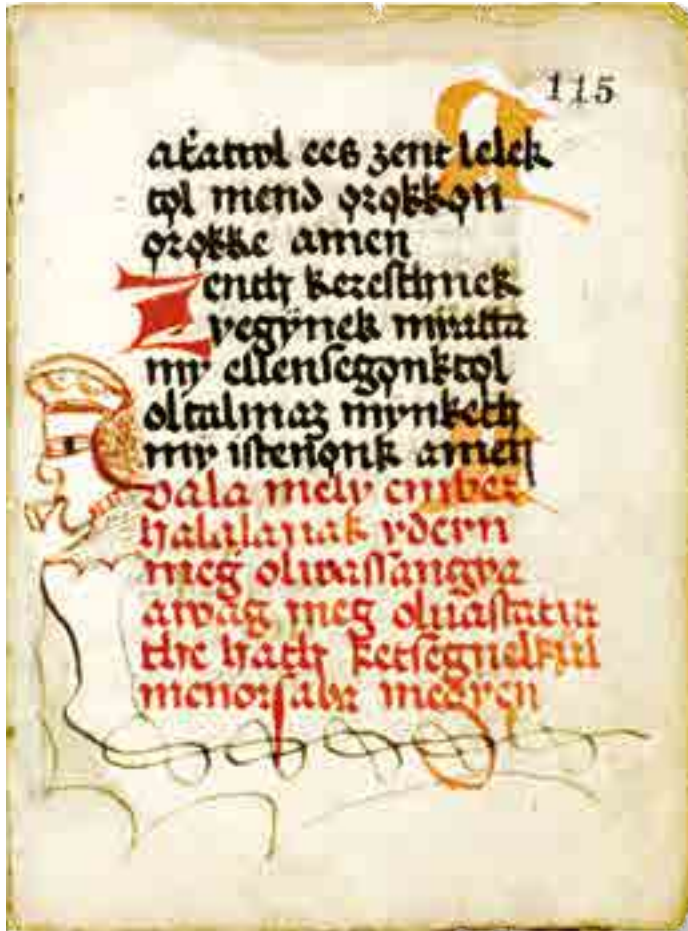 115
atʼatwl ees zent lelek
tǫl mend ǫrǫkkǫn
ǫrǫkke amen
Zenth kereſthnek
yegÿnek miatta
my ellenſegǫnktǫl
oltalmaz mynketh
my iſtenǫnk amen
vala mely ember
halalanak ydeyn
meg olwaſſangya
awag meg oluaſtatya
the hath ketſegnelkÿl
menorſabz megyen